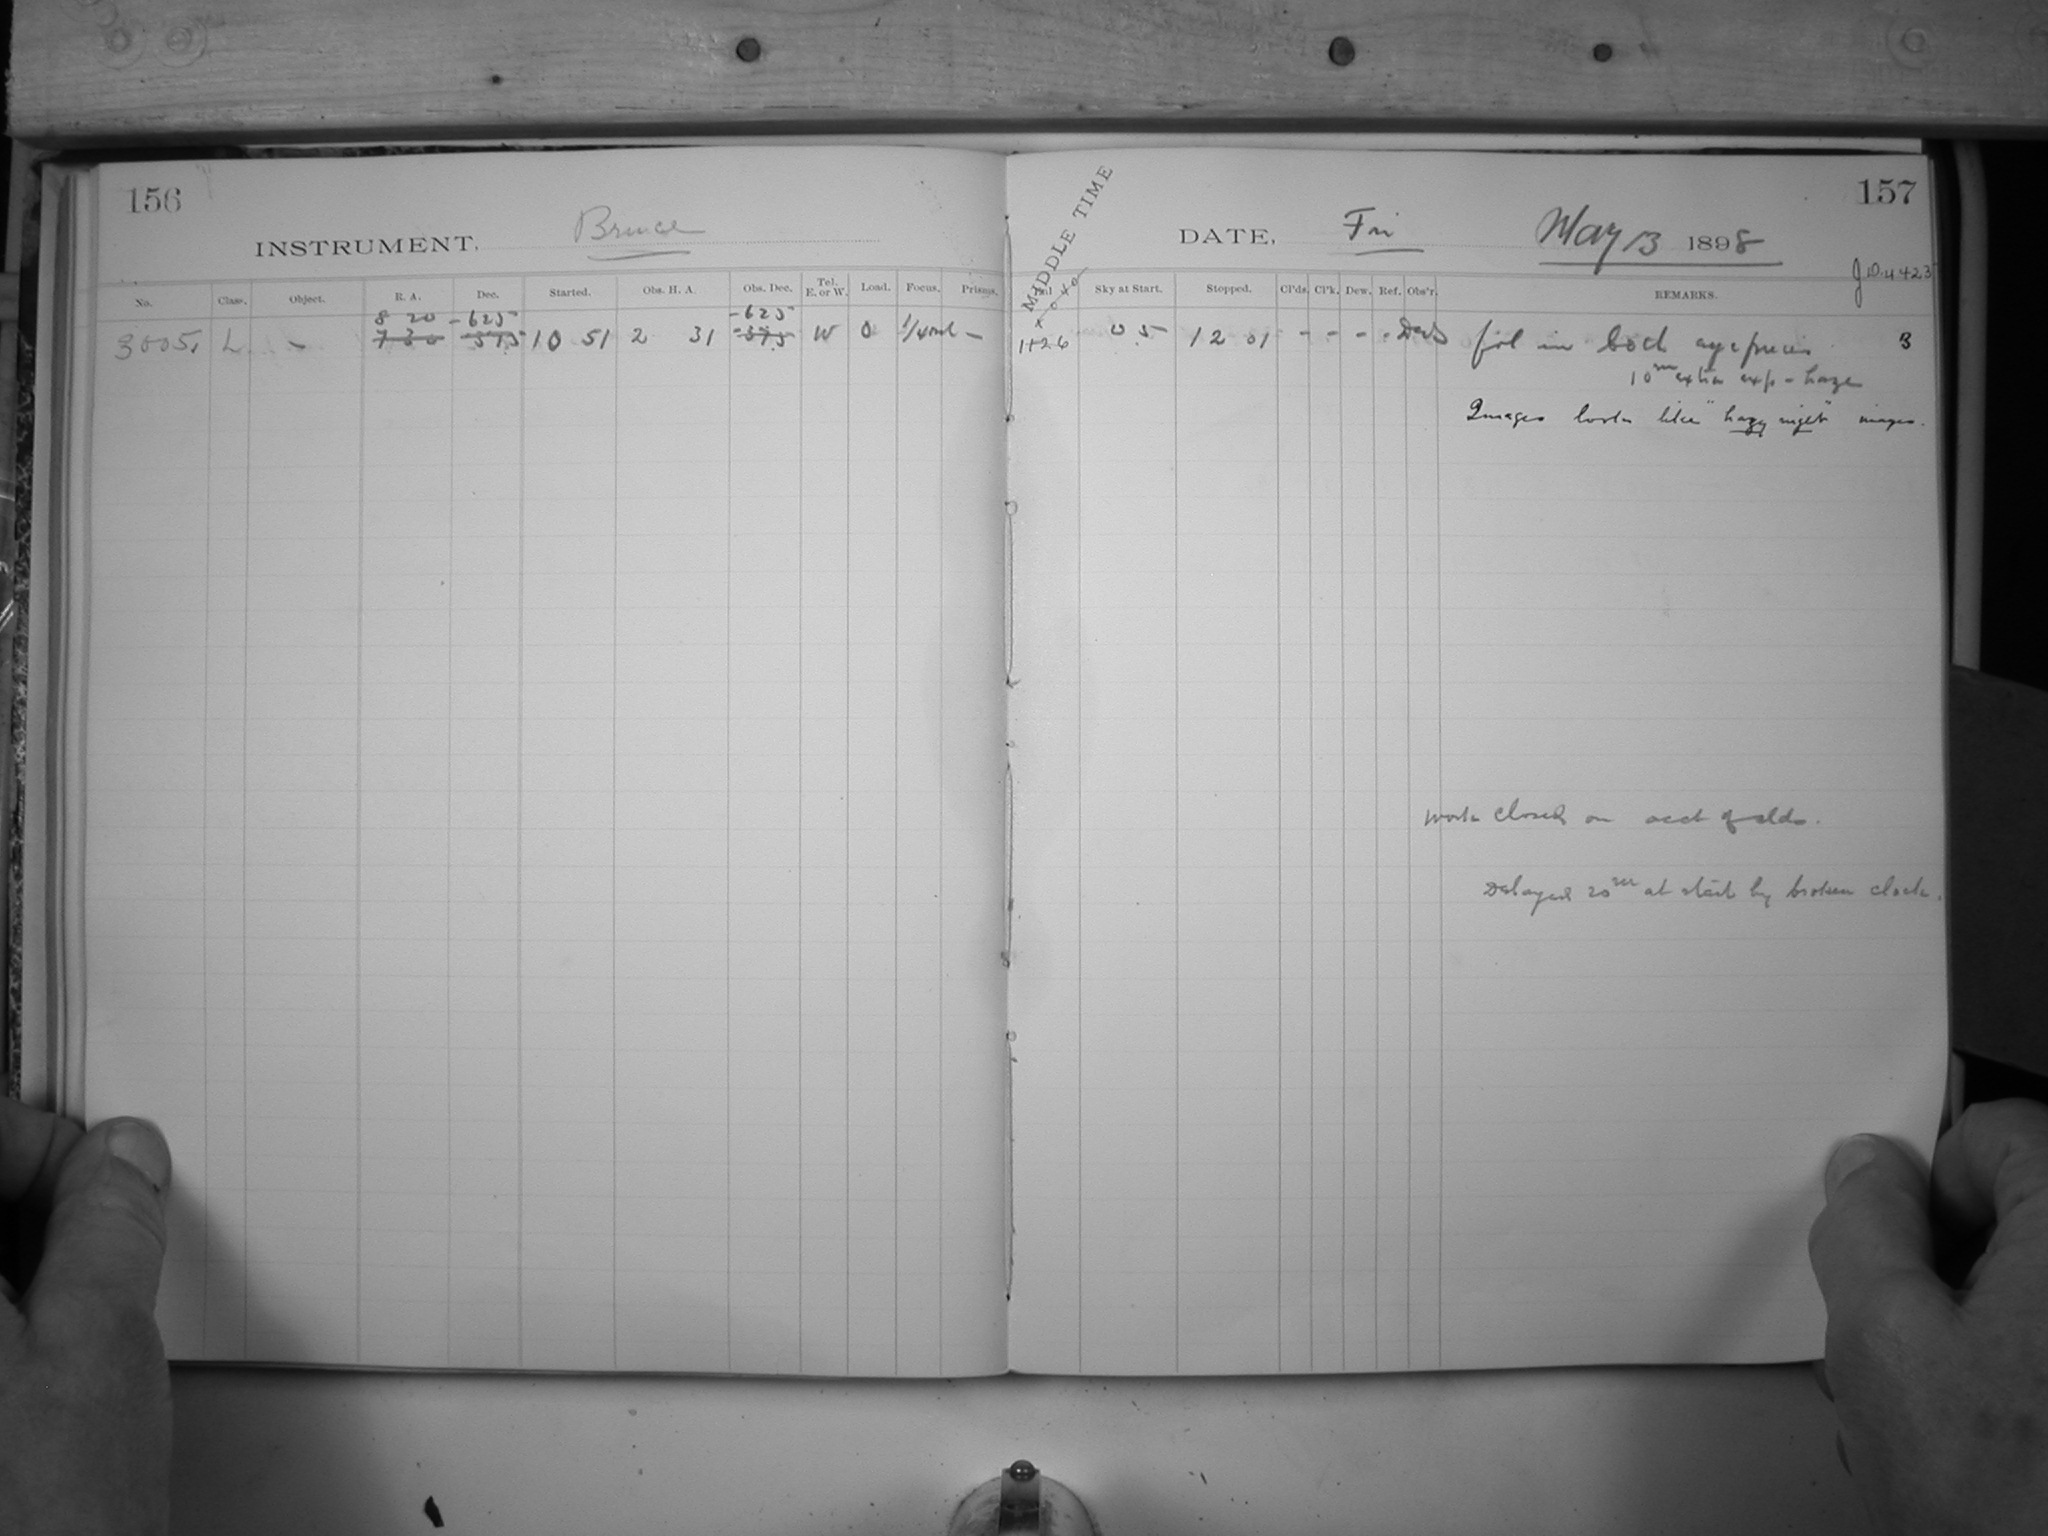 156
INSTRUMENT, Bruce
No. Class. Object. R. A. Dec. Started. Obs. H. A. Obs. Dec. Tel. E. or W. Load. Focus. Prisms.
8 20 -625 -625
3005 L - 730 -575 10 51 2 31 -575 W 0 -
MIDDLE TIME
157
DATE, Fri May 13 1898
J 10.4423
Sky at Start. Stopped. Cl'ds. Cl'k. Dew. Ref. Obs'r. REMARKS.
1126 0 5 12 01 - - - - fol in both eyepieces 3
10m extra exp - haze
Images look like "hazy night" images.
Work closed on acct of clds.
Delayed 20m at start by broken clock.